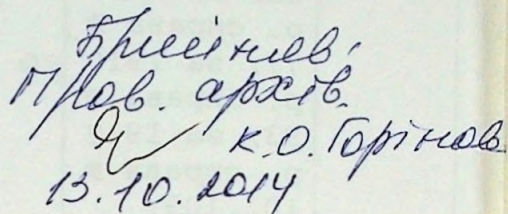 Прийняв:
Пров. архів.
К.О. Горінов
13.10.2014